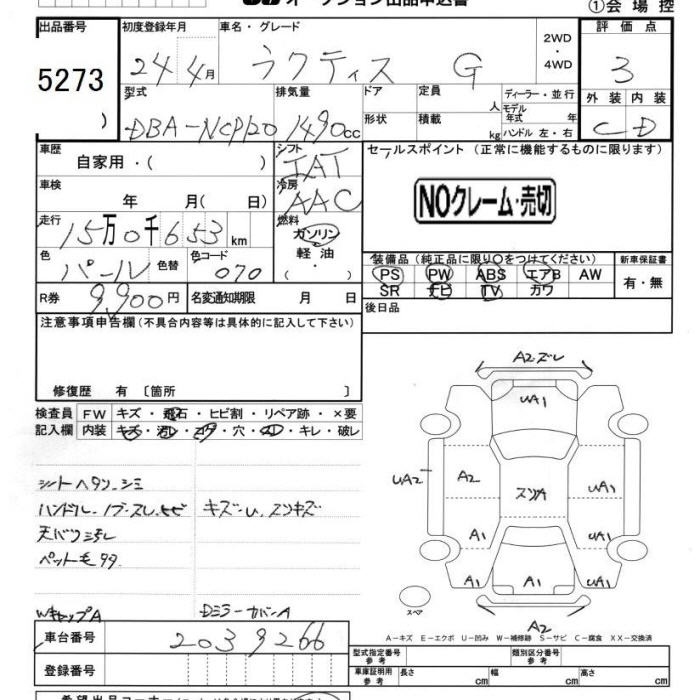 オークション出品申込書
①会場控
出品番号 初度登録年月 車名・グレード 評価点
5273
24年4月 ラクティス G
2WD
・
4WD
3
外装 内装
C D
型式 排気量 ドア 定員 ディーラー・並行
人 モデル年式 年
DBA-NCP120 1490cc 形状 積載 kg ハンドル 左・右
車歴 自家用・( ) シフト IAT
セールスポイント (正常に機能するものに限ります)
車検 年 月( 日) 冷房 AAC
NOクレーム・売切
走行 15万0千653km
燃料 ガソリン
軽油
( ・ )
色 パール 色替 色コード 070
装備品(純正品に限り〇をつけてください) 新車保証書
PS PW ABS エアB AW
SR ナビ TV カワ
有・無
R券 9,900円 名変通知期限 月 日
後日品
注意事項申告欄(不具合内容等は具体的に記入して下さい)
修復歴 有 〔箇所 〕
検査員 FW キズ・飛石・ヒビ割・リペア跡・×要
記入欄 内装 キズ・汚れ・コゲ・穴・スレ・キレ・破レ
シートヘタリ、シミ
ハンドル、ノブスレ、ヒビ
キズ〜U、スリキズ
天バリ汚れ
ペット毛
WキャップA
DミラーカバーA
A2ズレ
UA1
UA2
A2
スリA
UA1
A1
UA1
A1
A1
UA1
スペア
A2
A-キズ E-エクボ U-凹み W-補修跡 S-サビ C-腐食 XX-交換済
車台番号 2039266
型式指定番号 参考 類別区分番号 参考
登録番号
車庫証明用 参考 長さ cm 幅 cm 高さ cm
希望出品コーナー